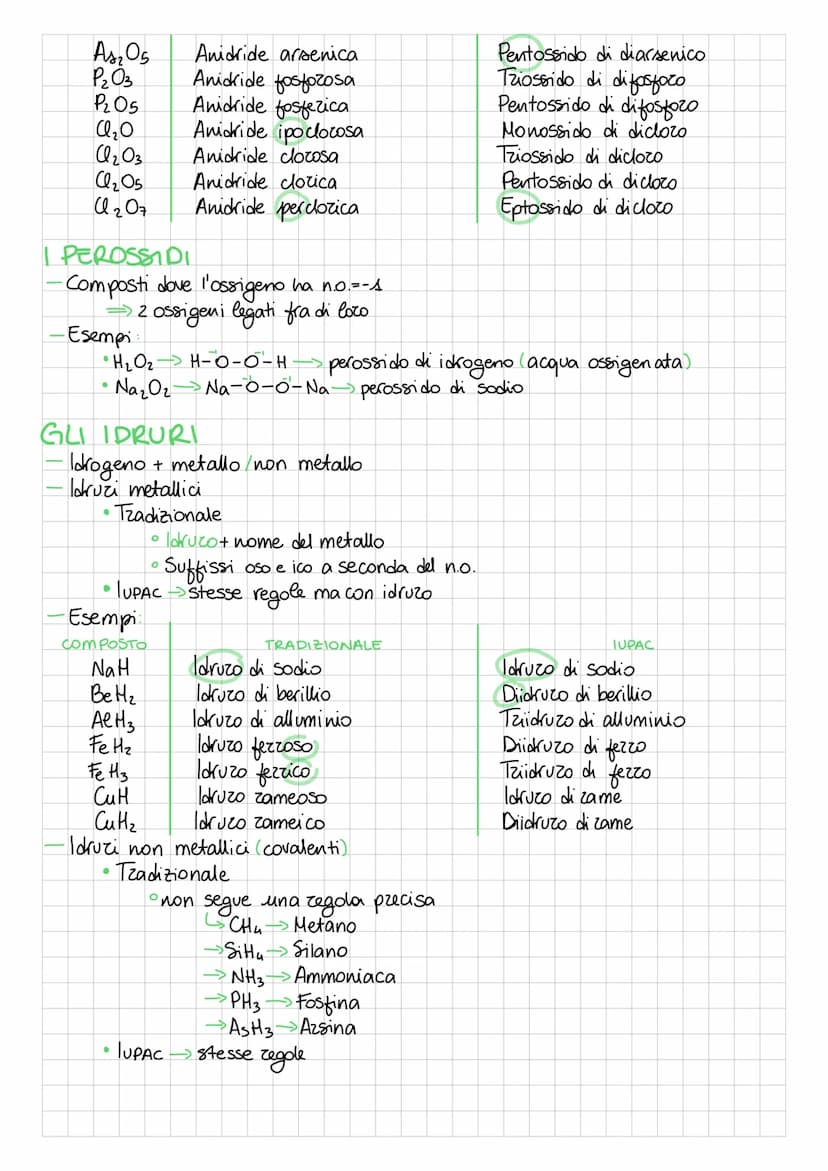 As₂O₅ Anidride arsenica Pentossido di diarsenico
P₂O₃ Anidride fosforosa Triossido di difosforo
P₂O₅ Anidride fosforica Pentossido di difosforo
Cl₂O Anidride ipoclorosa Monossido di dicloro
Cl₂O₃ Anidride clorosa Triossido di dicloro
Cl₂O₅ Anidride clorica Pentossido di dicloro
Cl₂O₇ Anidride perclorica Eptossido di dicloro
I PEROSSIDI
– Composti dove l'ossigeno ha n.o.=-1
⇒ 2 ossigeni legati fra di loro
– Esempi:
• H₂O₂ → H-O⁻¹-O⁻¹-H → perossido di idrogeno (acqua ossigenata)
• Na₂O₂ → Na-O⁻¹-O⁻¹-Na → perossido di sodio
GLI IDRURI
– Idrogeno + metallo/non metallo
– Idruri metallici
• Tradizionale
° Idruro + nome del metallo
° Suffissi oso e ico a seconda del n.o.
• IUPAC → stesse regole ma con idruro
– Esempi:
COMPOSTO TRADIZIONALE IUPAC
NaH Idruro di sodio Idruro di sodio
BeH₂ Idruro di berillio Diidruro di berillio
AlH₃ Idruro di alluminio Triidruro di alluminio
FeH₂ Idruro ferroso Diidruro di ferro
FeH₃ Idruro ferrico Triidruro di ferro
CuH Idruro rameoso Idruro di rame
CuH₂ Idruro rameico Diidruro di rame
– Idruri non metallici (covalenti)
• Tradizionale
° non segue una regola precisa
↳ CH₄ → Metano
→ SiH₄ → Silano
→ NH₃ → Ammoniaca
→ PH₃ → Fosfina
→ AsH₃ → Arsina
• IUPAC → stesse regole